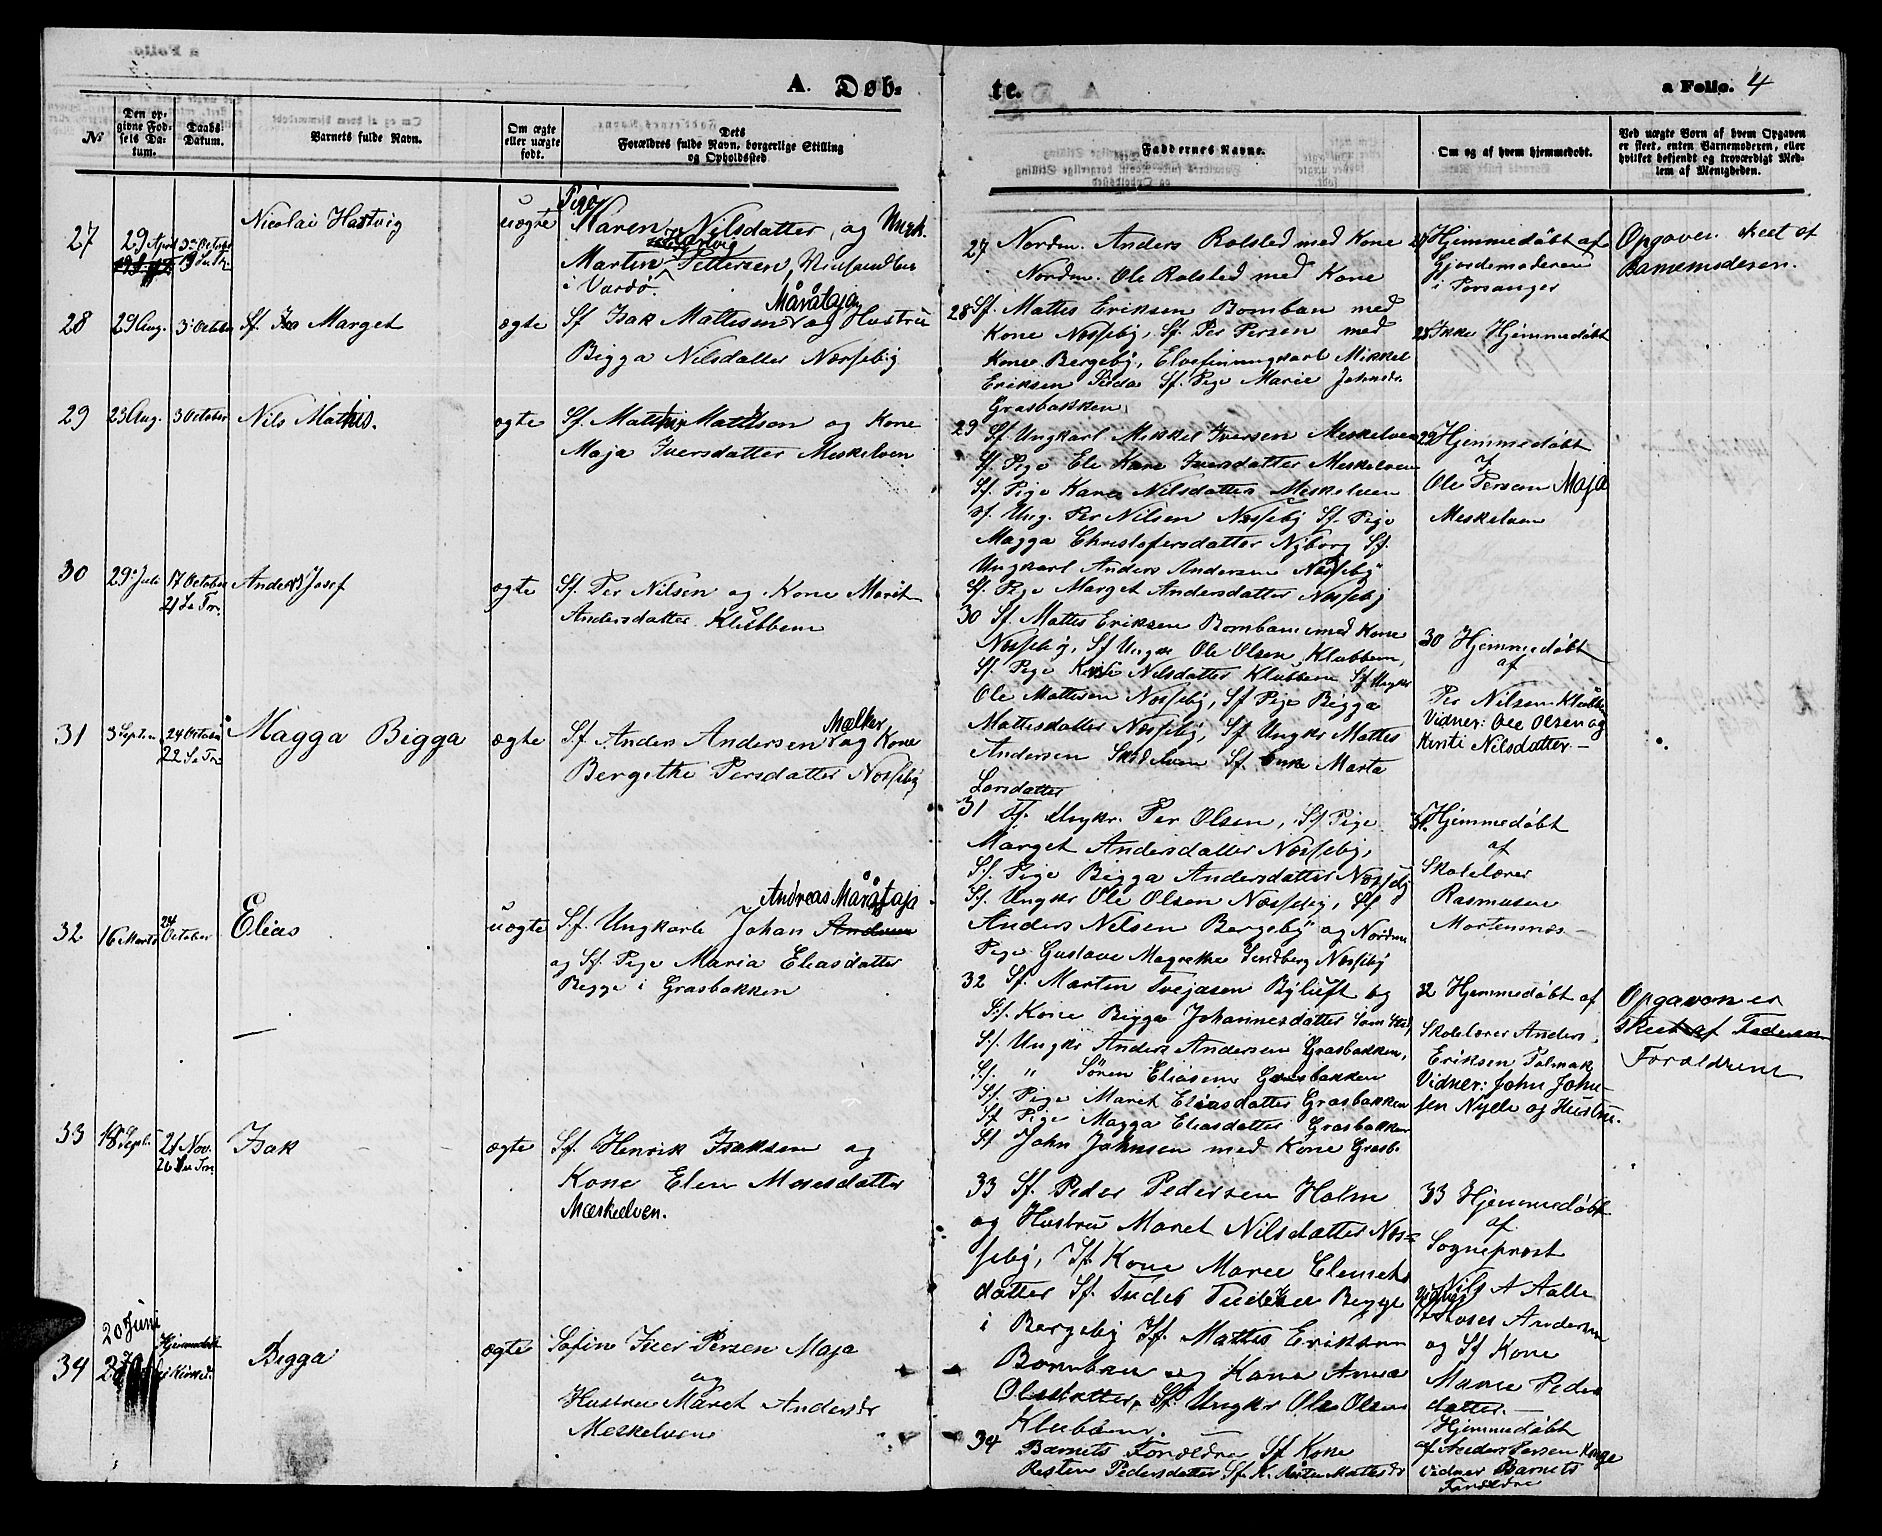 A. Døb-
te.
a Folio. 4
№
Den op-
givne Fød-
sels Da-
tum.
Daabs
Datum.
Barnets fulde Navn.
Om ægte
eller uægte
født.
Dets
Forældres fulde Navn, borgerlige Stilling
og Opholdssted.
Faddernes Navne.
Om og af hvem hjemmedøbt.
Ved uægte Born af hvem Opgaven
er skeet, enten Barnemoderen, eller
hvilket bekjendt og troværdigt Med-
lem af Menigheden.
27
29 April
3die October
Nicolai Hartvig
uægte
Pige
Karen Nilsdatter, og Ungk.
Martin Pettersen,
i Vardö.
27 Nordm. Anders Rolsted med Kone
Nordm. Ole Rolsted med Kone
27 Hjemmedøbt af
Gjordemoderen
i Porsanger
Opgaven skeet af
Barnemoderen.
28
29 Aug.
3die October
Sf. Isa Marget
ægte
Sf Isak Mattesen Måråtaja og Hustru
Bigga Nilsdatter Næsseby
28 Sf. Mattes Eriksen Bomban med
Kone Næsseby, Sf. Per Persen med
Kone Bergeby, Elvefinnungkarl Mikkel
Eriksen Sf. Pige Marie Johnsdr.
Grasbakken
28 Ikke Hjemmedøbt
29
23 Aug.
3 October
Nils Mathis.
ægte
Sf. Matthis Matteson og Kone
Maja Iversdatter Meskelven
29 Sf. Ungkarl Mikkel Iversen Meskelven
Sf. Pige Ele Kare Iversdatter Meskelven
Sf. Pige Karen Nilsdatter Meskelven
Sf. Ung. Per Nilsen Næsseby Sf. Pige
Magga Christofersdatter Nyborg Sf.
Ungkarl Anders Andersen Næsseby
Sf. Pige Marget Andersdatter Næsseby
29 Hjemmedøbt
af
Ole Persen Maja
Meskelven
30
29de Juli
17 October
21 S. Tr.
Anders Josef
ægte
Sf. Per Nilsen og Kone Marit
Andersdatter Klubben
30 Sf. Mattes Eriksen Bomban med Kone
Næsseby, Sf Ungkr Ole Olsen Klubben,
Sf. Pige Kirste Nilsdatter Klubben Sf Ungkr
Ole Mattesen Næsseby, Sf Pige Bigga
Mattesdatter Næsseby, Sf Ungkr Mattes
Andersen Sf. Marta
Larsdatter
30 Hjemmedøbt
af
Per Nilsen Klubben
Vidner: Ole Olsen og
Kirsti Nilsdatter -
31
3 Septem
24 October
22 S. Tr.
Magga Bigga
ægte
Sf. Anders Andersen Mælker og Kone
Bergithe Persdatter Næsseby
31 Sf. Ungkr. Per Olsen, Sf Pige
Marget Andersdatter Næsseby,
Sf. Pige Bigga Andersdatter Næsseby
Sf. Ungkr Ole Olsen Næsseby, Sf
Anders Nilsen Bergeby og Nordm
Pige Gustava Magrethe Sundberg Næsseby
31 Hjemmedøbt
af
Skolelærer
Rasmussen
Mortensnæs -
32
16 Marts
24 October
Elias
uægte
Sf. Ungkarl Johan Andreas Måråtaja
og Sf. Pige Maria Eliasdatter
Begge i Grasbakken
32 Sf. Morten Byluft og
Sf. Kone Bigga Johannesdatter Sam Sted,
Sf. Ungkr Anders Andersen Grasbakken,
Sf. " Søren Eliasen Grasbakken
Sf. Pige Maret Eliasdatter Grasbakken
Sf Pige Magga Eliasdatter Grasbakken
Sf John Johnsen med Kone Grasb.
32 Hjemmedøbt af
Skolelærer Anders
Eriksen Talmak
Vidner: John John-
sen Nylle og Hustru.
Opgaven er
skeet af Faderen
Forældrene
33
18 Septr.
21 Nov.
26 S. Tr.
Isak
ægte
Sf. Henrik Isaksen og
Kone Elen Mosesdatter
Mæskelven.
33 Sf. Peder Pedersen Holm
og Hustru Maret Nilsdatter Næs-
seby, Sf. Kone Maree Clemets
datter Sf. Tudes Tudesen Begge
i Bergeby Sf. Mattes Eriksen
Bomban og Kone Anna
Olsdatter, Sf. Ungkr Ole Olsen
Klubben.
33 Hjemmedøbt
af
Sogneprest
Nils A Aalle
Vidner
Moses Andersen
og Sf Kone
Marie Peders
datter. -
34
20 Juni
Hjemmedøbt
Bigga
ægte
Søfin Iver Persen Maja
og
Hustru Maret Andersdr
Meskelven
34 Barnets Forældre Sf Kone
Kirsten Pedersdatter Sf. K. Mattesdr
Hjemmedøbt
af Anders Persen Konge
Vidner Barnets
Forældre